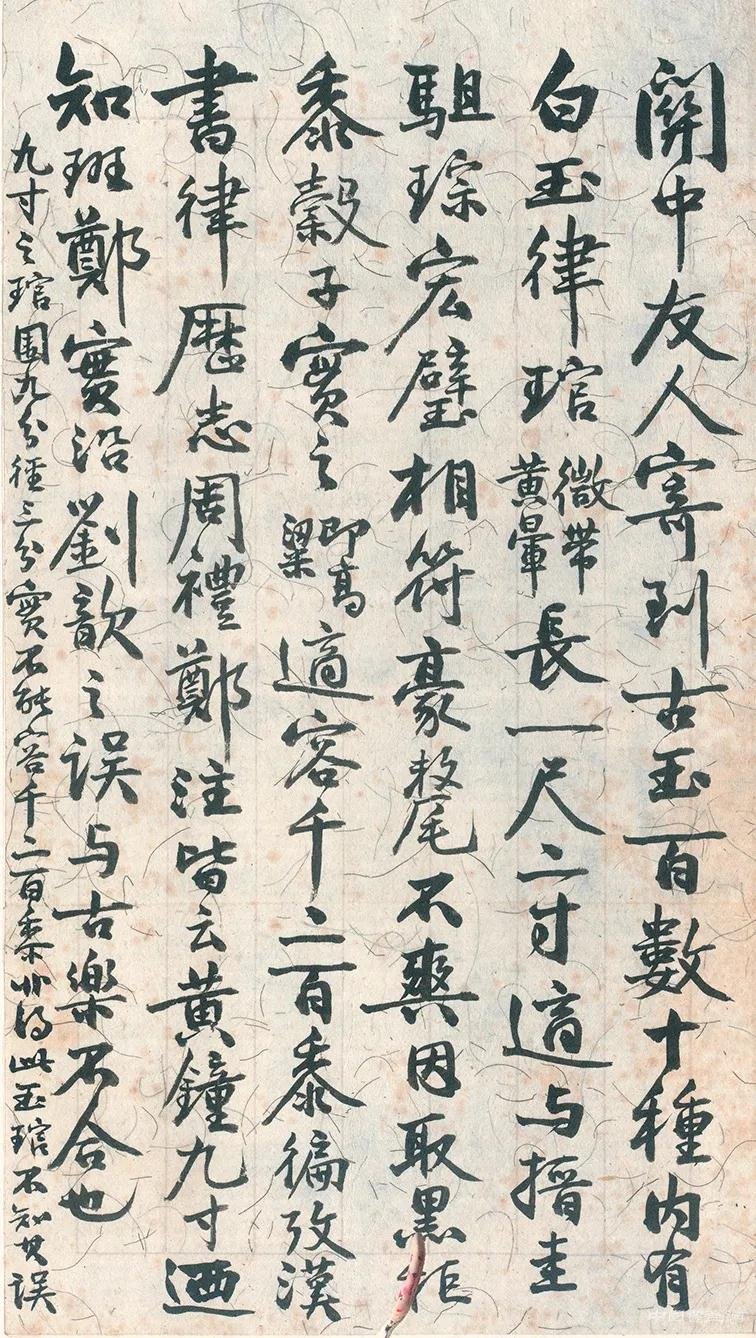 關中友人寄到古玉百數十種内有
白玉律琯微帶黃暈長一尺二寸適与搢圭
駔琮宏璧相符豪氂不爽因取黑秬
黍穀子實之即高粱適容千二百黍徧攷漢
書律歷志周禮鄭注皆云黃鐘九寸迺
知班鄭實沿劉歆之誤与古樂不合也
九寸之琯圍九分徑三分實不能容千二百黍非得此玉琯不知其誤